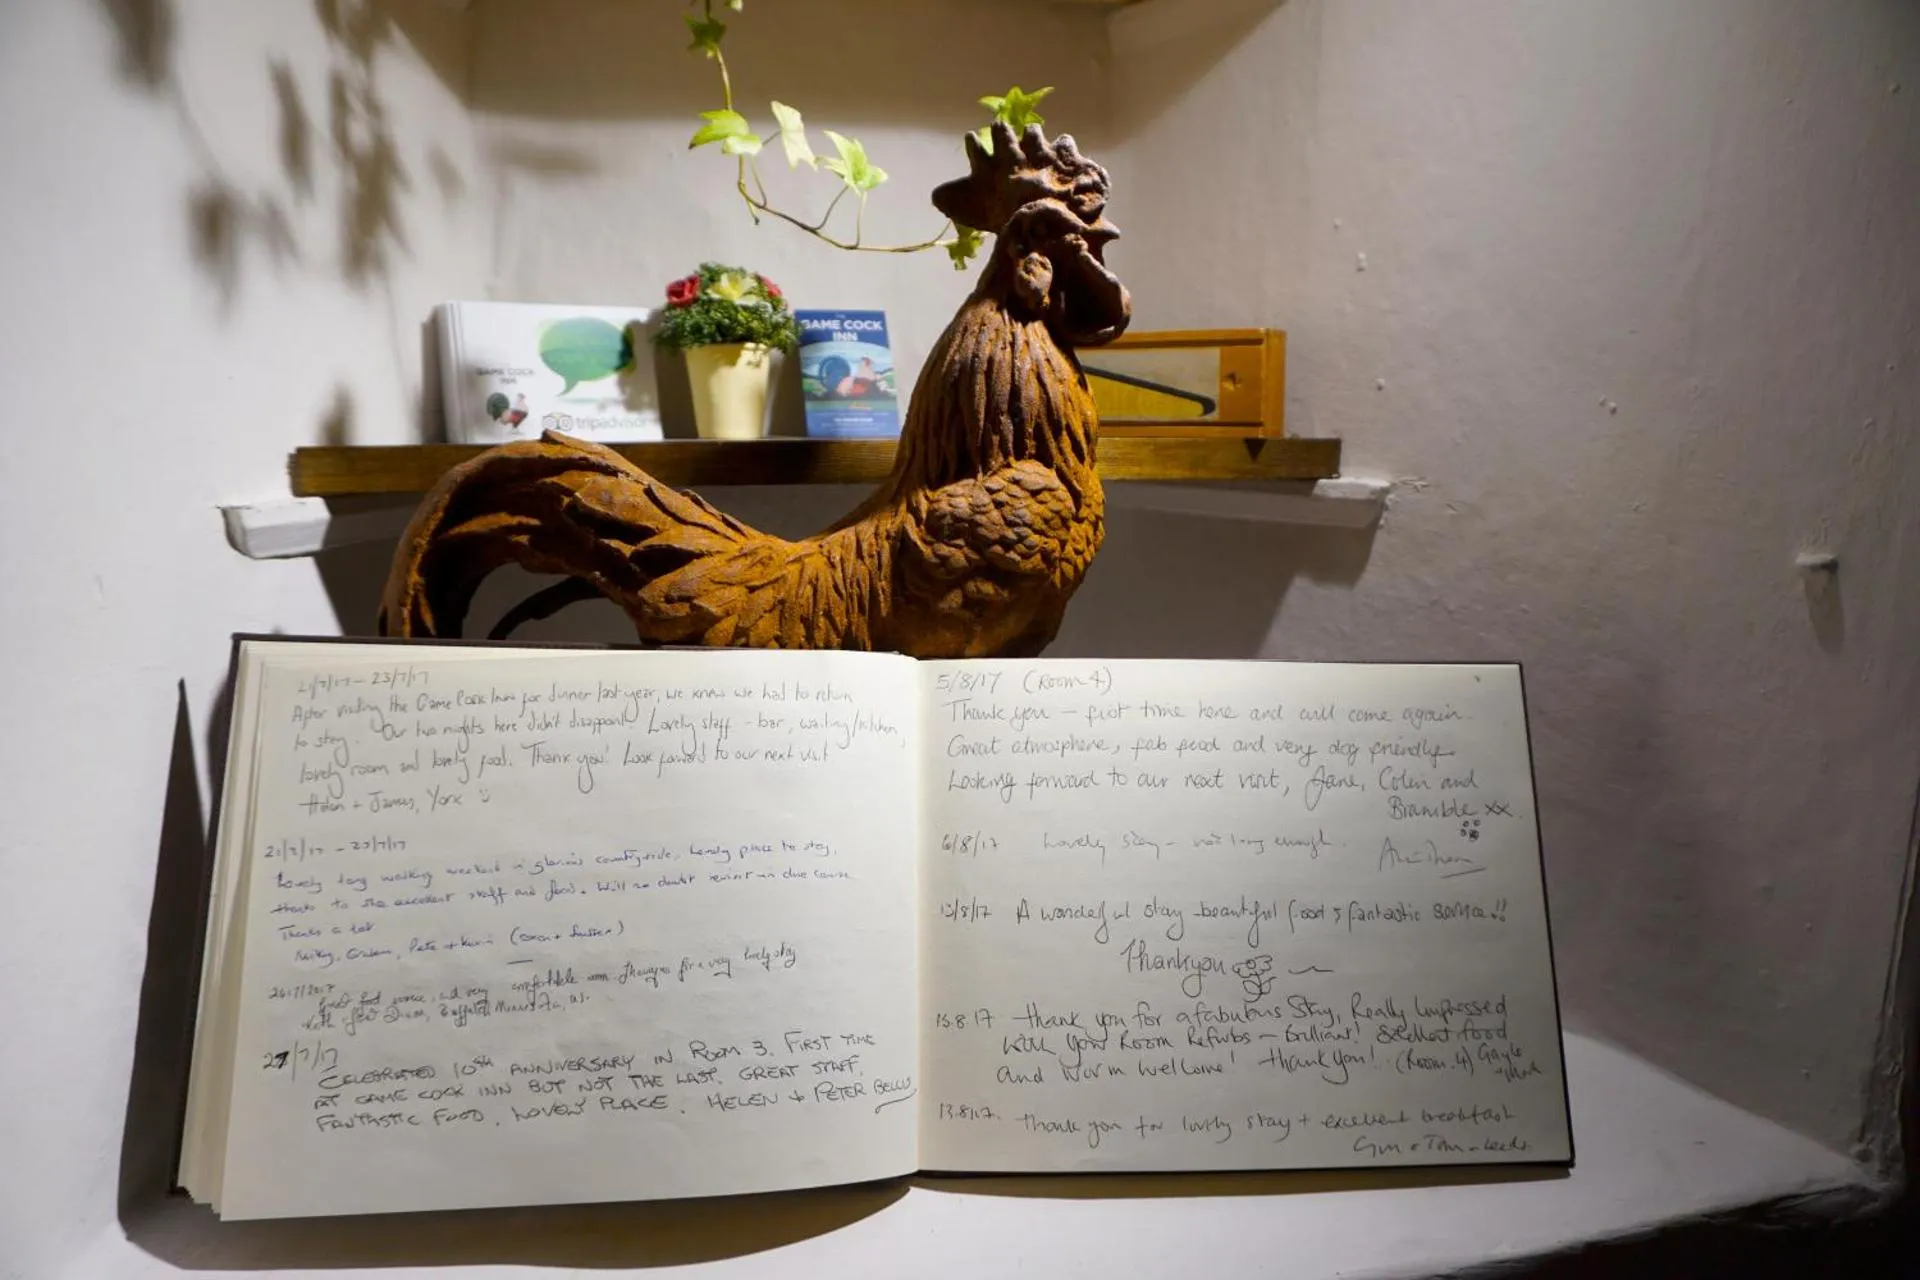 GAME COCK
INN
tripadvisor
GAME COCK
INN
21/7/17 - 23/7/17
After visiting the Game Cock Inn for dinner last year, we knew we had to return
to stay. Our two nights here didn't disappoint! Lovely staff - bar, waiting/kitchen,
lovely room and lovely food. Thank you! Look forward to our next visit
Helen + James, York
21/7/17 - 23/7/17
Lovely long walking weekend in glorious countryside. Lovely place to stay,
thanks to the excellent staff and food. Will no doubt revisit in due course
Thanks a lot
Graham, Pete + Kevin
26/7/2017
Great food service, and very comfortable room. Thank you for a very lovely stay
Buffalo, Minnesota, US.
27/7/17
CELEBRATED 10th ANNIVERSARY IN ROOM 3. FIRST TIME
AT GAME COCK INN BUT NOT THE LAST. GREAT STAFF,
FANTASTIC FOOD, LOVELY PLACE. HELEN + PETER
5/8/17 (Room 4)
Thank you - first time here and will come again.
Great atmosphere, fab food and very dog friendly.
Looking forward to our next visit, Jane, Colin and
Bramble xx.
6/8/17 Lovely stay - not long enough.
13/8/17 A wonderful stay - beautiful food & fantastic service!!
Thankyou
15.8.17 Thank you for a fabulous stay, Really Impressed
with your Room Refurbs - Brilliant! Excellent food
and warm welcome! Thank you! (Room 4) Gayle
13.8.17. Thank you for lovely stay + excellent breakfast
+ Tom - Leeds